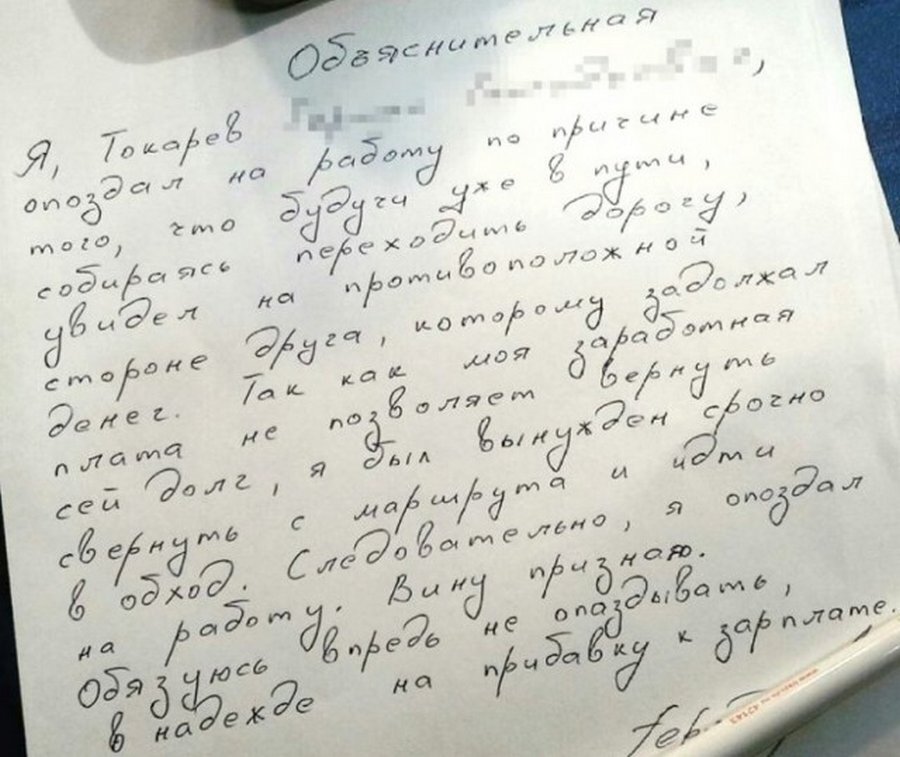 Объяснительная
Я, Токарев
опоздал на работу по причине
того, что будучи уже в пути,
собираясь переходить дорогу,
увидел на противоположной
стороне друга, которому задолжал
денег. Так как моя заработная
плата не позволяет вернуть
сей долг, я был вынужден срочно
свернуть с маршрута и идти
в обход. Следовательно, я опоздал
на работу. Вину признаю.
Обязуюсь впредь не опаздывать,
в надежде на прибавку к зарплате.